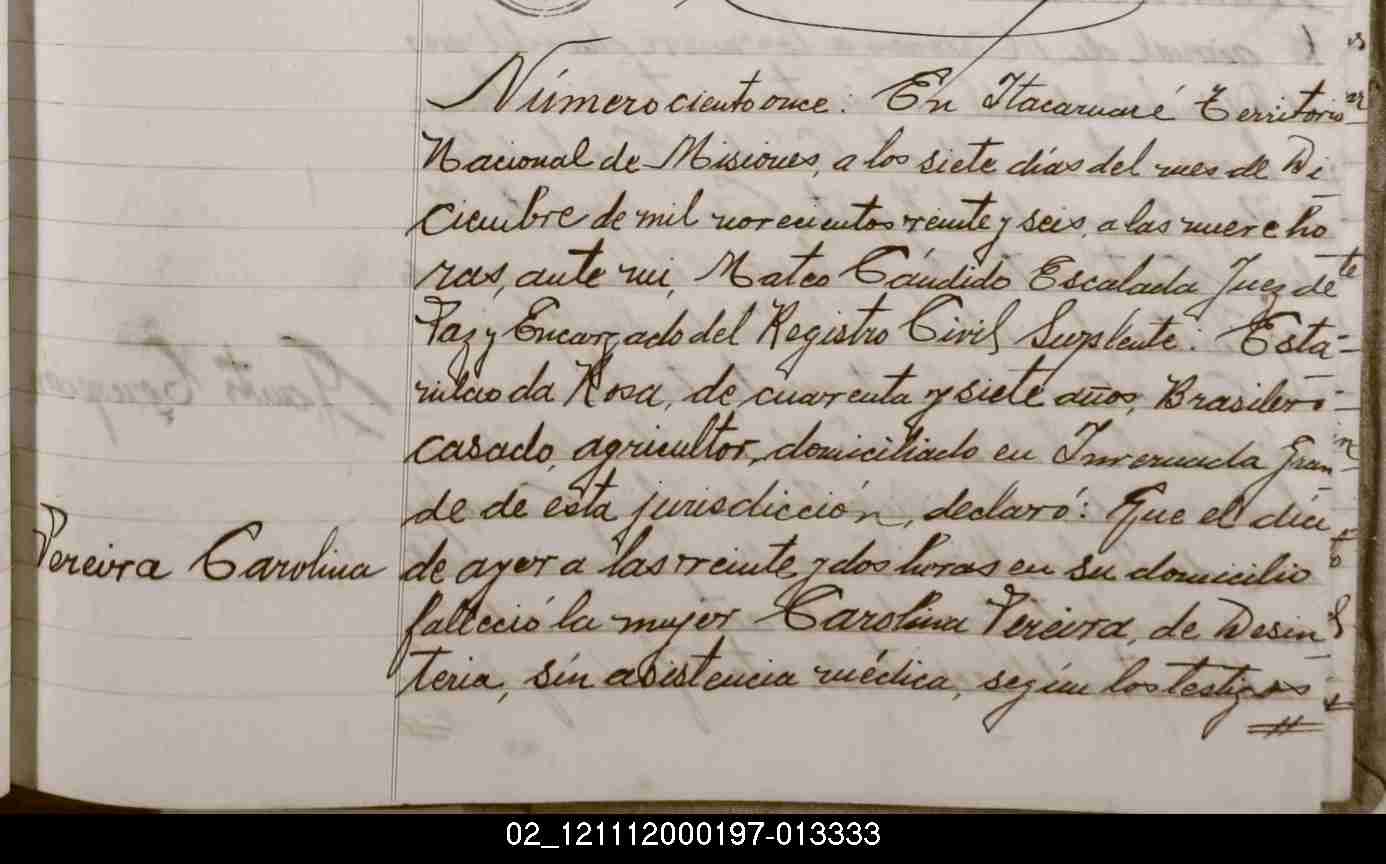 Número ciento once: En Itacaruaré Territorio
Nacional de Misiones, a los siete días del mes de Di
ciembre de mil novecientos veinte y seis, a las nueve ho
ras, ante mi, Mateo Cándido Escalada Juez de
Paz y Encargado del Registro Civil Suplente: Esta-
nislao da Rosa, de cuarenta y siete años, Brasilero
casado, agricultor, domiciliado en Invernada Gran
de de esta jurisdicción, declaró: Que el día
Pereira Carolina
de ayer a las veinte y dos horas en su domicilio
falleció la mujer Carolina Pereira, de Desin
teria, sin asistencia médica, según los testigos
02_121112000197-013333